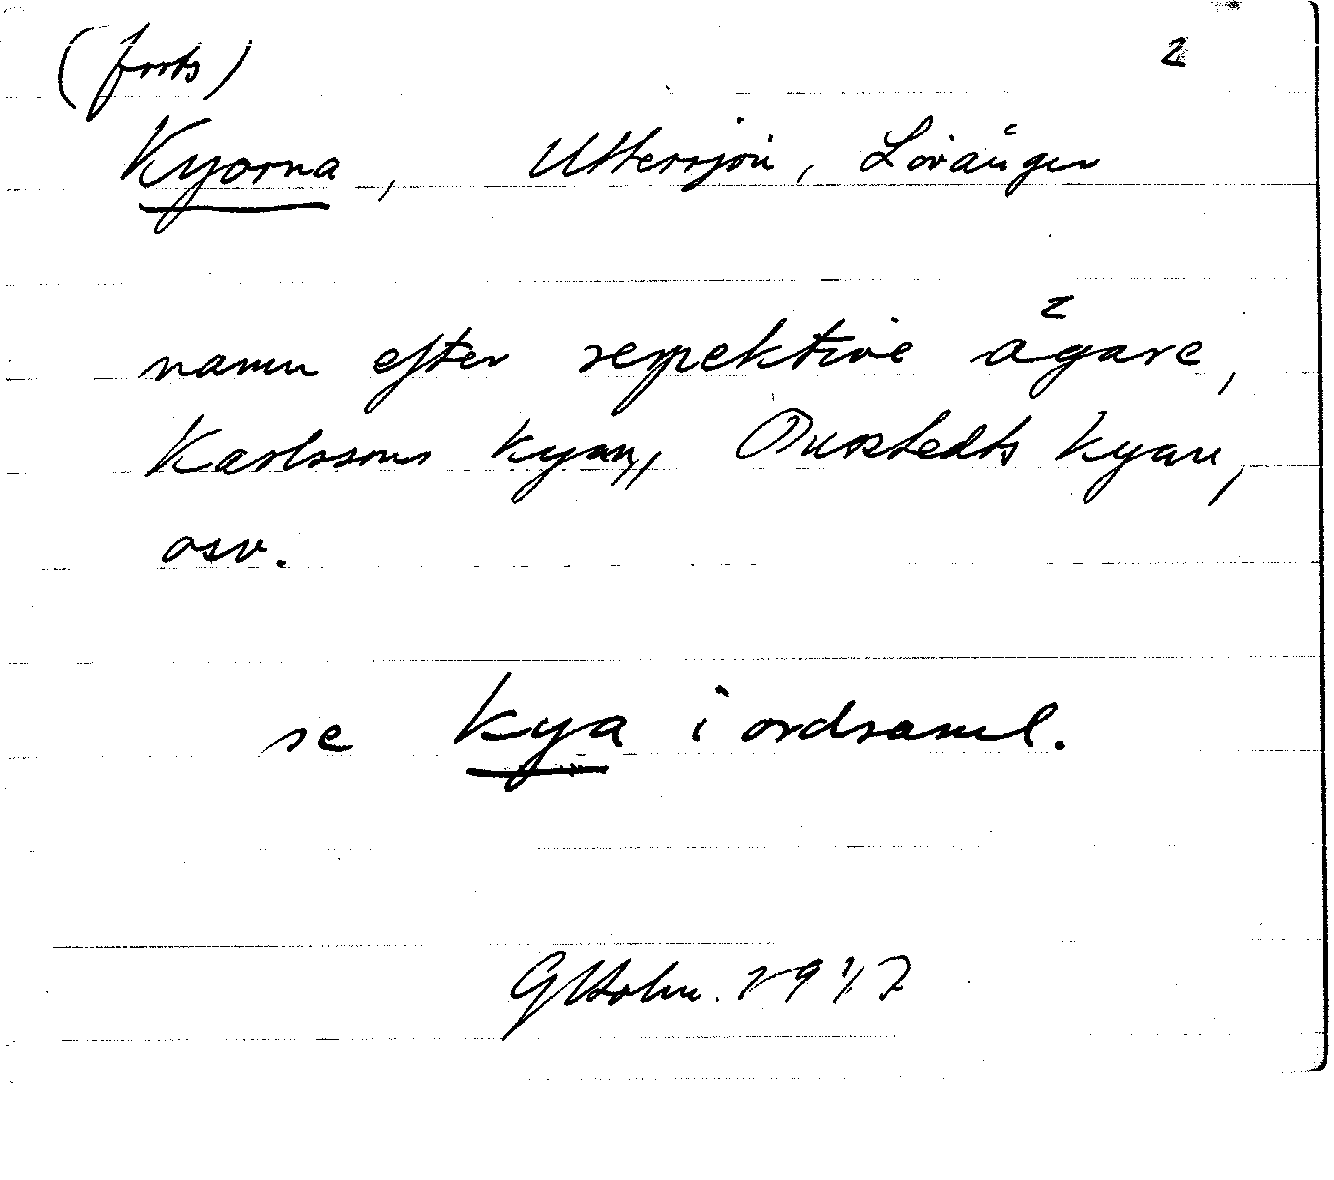 (forts) 2
Kyorna, Uttersjön, Lövånger
namn efter respektive ägare,
Karlssons kyan, kyan,
osv.
se kya i ordsaml.
GHolm. 1947